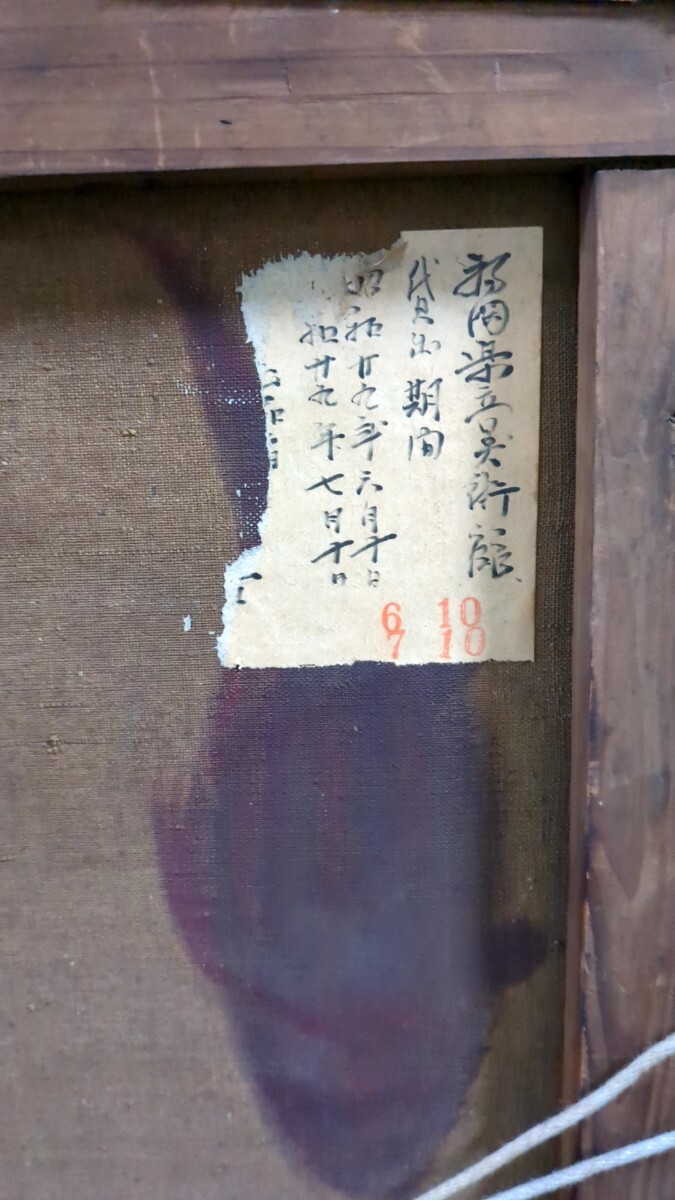 福岡県立美術館
貸出期間
昭和廿九年六月十日
和廿九年七月十日
6 10
7 10